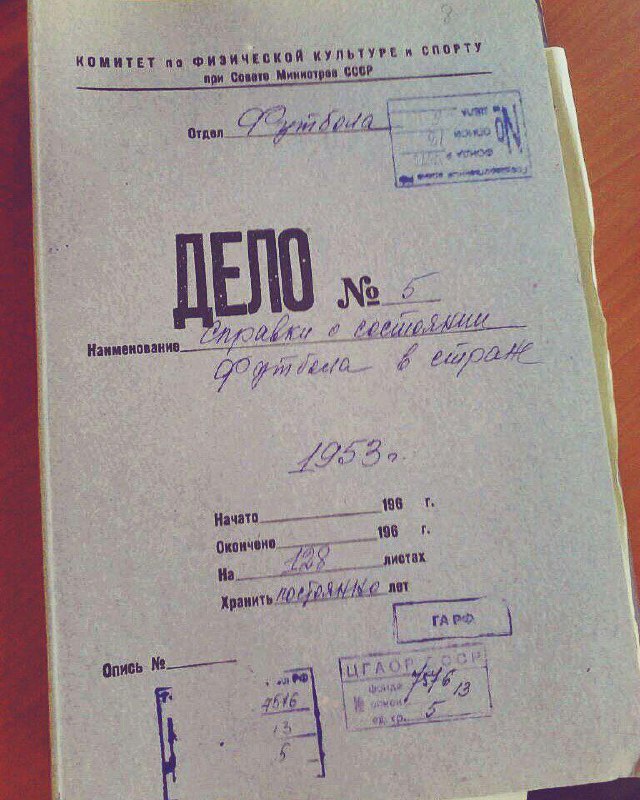 8
КОМИТЕТ по ФИЗИЧЕСКОЙ КУЛЬТУРЕ и СПОРТУ
при Совете Министров СССР
Отдел Футбола
№
ДЕЛА
ОПИСИ
ФОНДА
ДЕЛО № 5
Наименование Справки о состоянии
футбола в стране
1953 г.
Начато 196 г.
Окончено 196 г.
На 128 листах
Хранить постоянно лет
ГА РФ
Опись №
ЦГАОР СССР
фонд 7576
опись 13
ед. хр. 5
РФ
7576
13
5